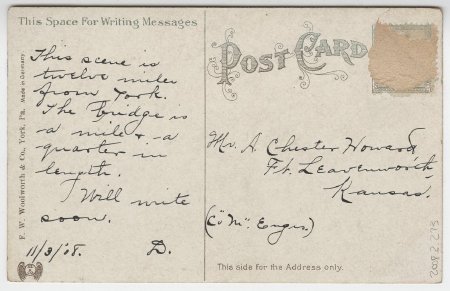 This Space For Writing Messages
POST CARD
F. W. Woolworth & Co., York, Pa. Made in Germany.
This scene is
twelve miles
from York.
The bridge is
a mile & a
quarter in
length.
I will write
soon.
11/3/'08. D.
Mr. A. Chester Howard,
Ft. Leavenworth,
Kansas.
(Co "M". Engrs)
This side for the Address only.